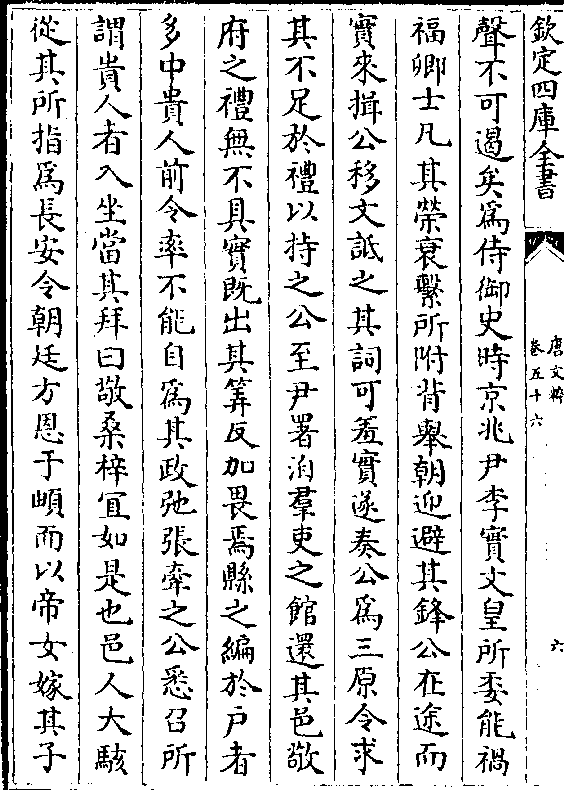 欽定四庫全書
唐文粹
卷五十六
六
聲不可遏矣為侍御史時京兆尹李實文皇所委能禍
福卿士凡其榮衰繫所附背舉朝迎避其鋒公在途而
實來揖公移文詆之其詞可羞實遂奏公為三原令求
其不足於禮以持之公至尹署洎羣吏之館還其邑敬
府之禮無不具實既出其筭反加畏焉縣之編於戶者
多中貴人前令率不能自為其政弛張牽之公悉召所
謂貴人者入坐當其拜曰敬桑梓冝如是也邑人大駭
從其所指為長安令朝廷方恩于頔而以帝女嫁其子